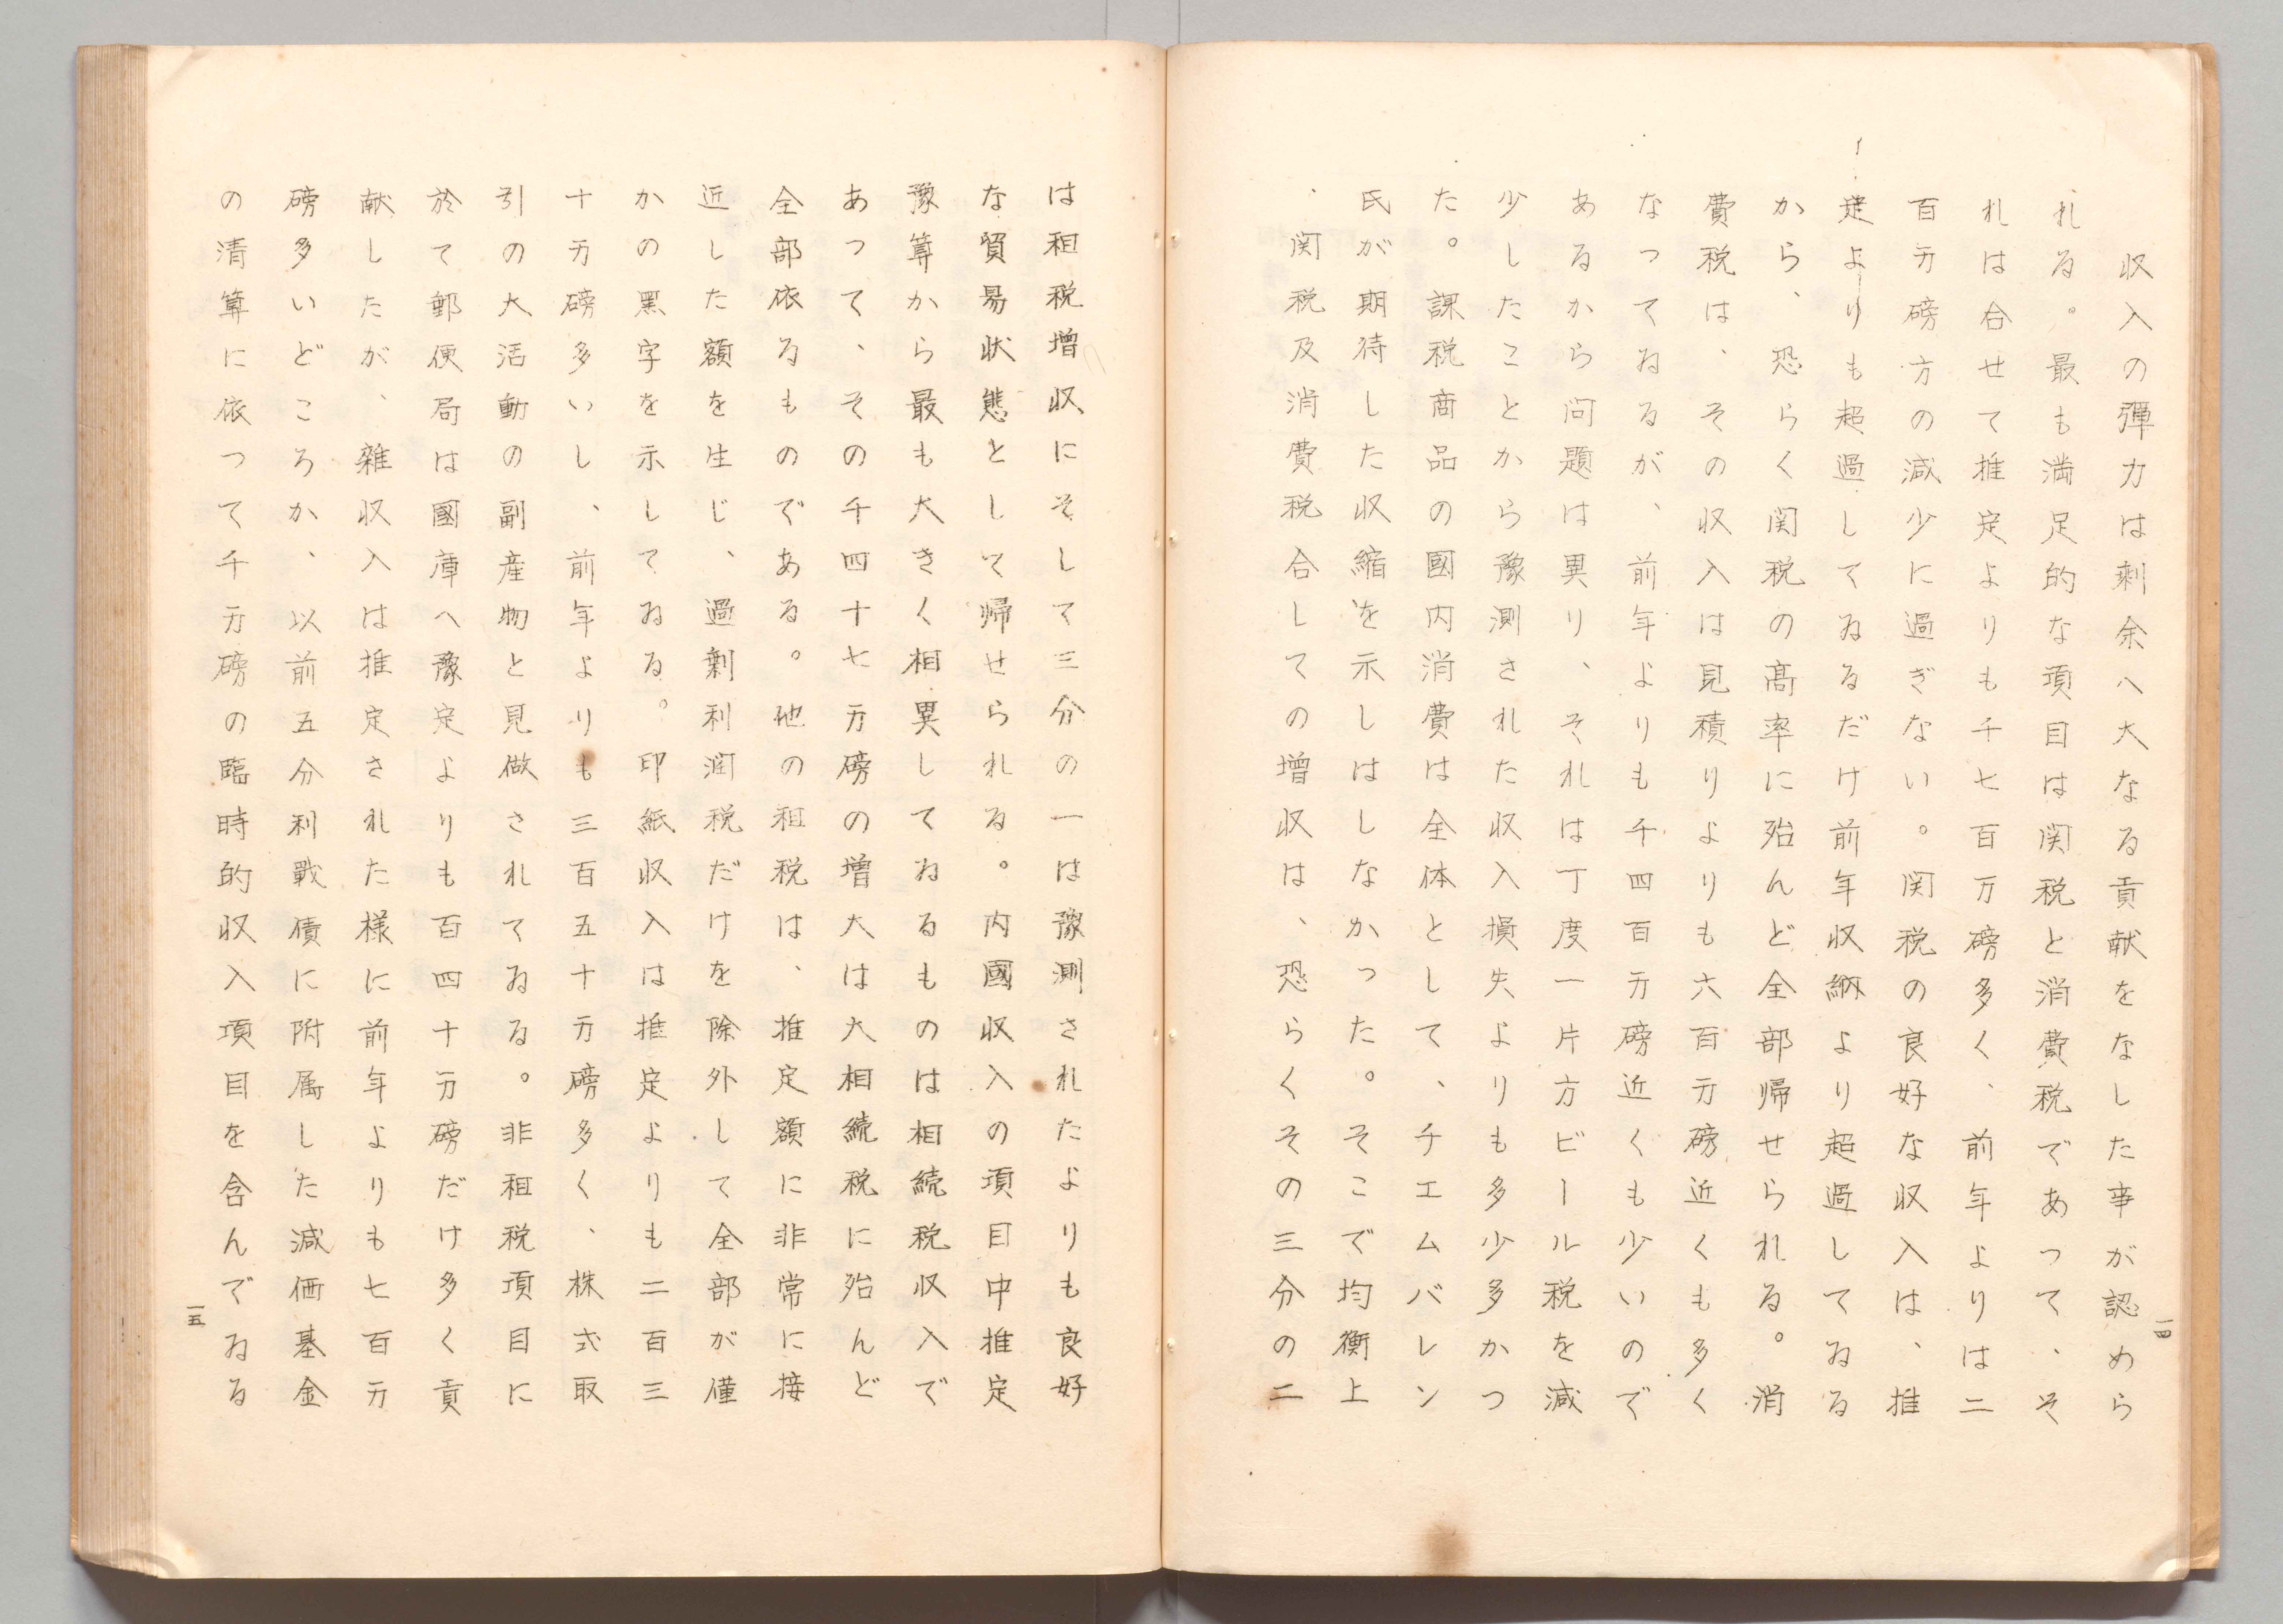 収入の弾力は剰余へ大なる貢献をなした事が認めら
れる。最も満足的な項目は関税と消費税であって、そ
れは合せて推定よりも千七百万磅多く、前年よりは二
百万磅方の減少に過ぎない。関税の良好な収入は、推
定よりも超過してゐるだけ前年収納より超過してゐる
から、恐らく関税の高率に殆んど全部帰せられる。消
費税は、その収入は見積りよりも六百万磅近くも多く
なってゐるが、前年よりも千四百万磅近くも少いので
あるから問題は異り、それは丁度一片方ビール税を減
少したことから豫測された収入損失よりも多少多かつ
た。課税商品の國内消費は全体として、チエムバレン
氏が期待した収縮を示しはしなかった。そこで均衡上
、関税及消費税合しての増収は、恐らくその三分の二
一四
は租税増収にそして三分の一は豫測されたよりも良好
な貿易状態として帰せられる。内國収入の項目中推定
豫算から最も大きく相異してゐるものは相続税収入で
あって、その千四十七万磅の増大は大相続税に殆んど
全部依るものである。他の租税は、推定額に非常に接
近した額を生じ、過剰利潤税だけを除外して全部が僅
かの黒字を示してゐる。印紙収入は推定よりも二百三
十万磅多いし、前年よりも三百五十万磅多く、株式取
引の大活動の副産物と見做されてゐる。非租税項目に
於て郵便局は國庫へ豫定よりも百四十万磅だけ多く貢
献したが、雑収入は推定された様に前年よりも七百万
磅多いどころか、以前五分利戰債に附属した減価基金
の清算に依つて千万磅の臨時的収入項目を含んでゐる
一五